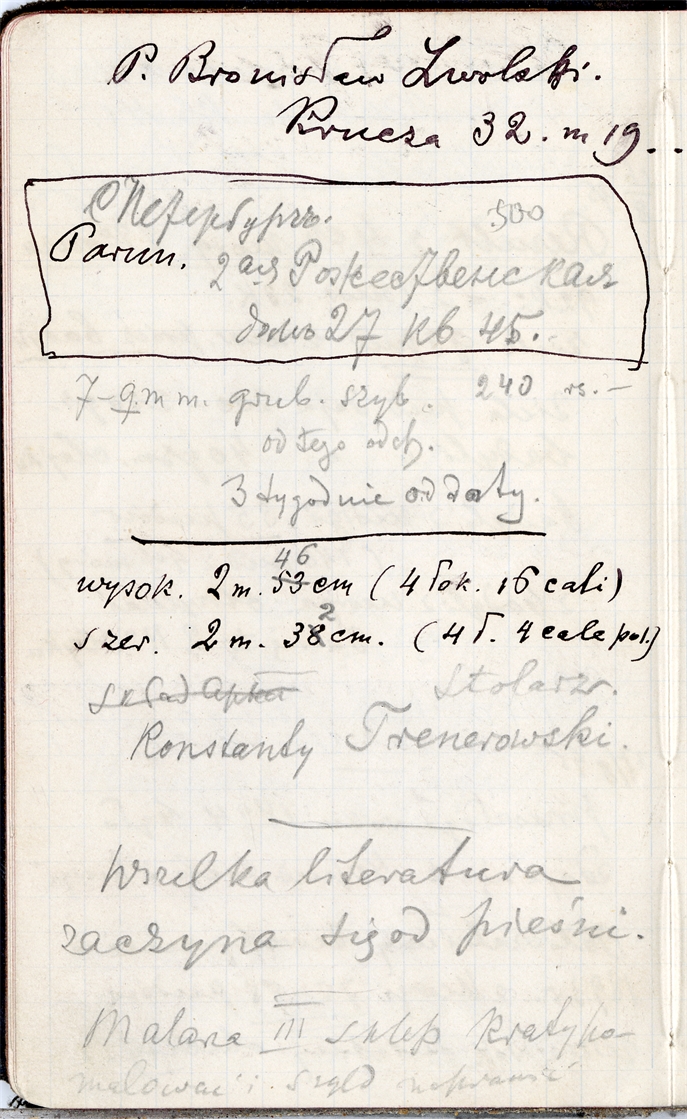 P. Bronisław Lwolski.
Krucza 32. m 19..
СПетербургъ. 500
Parun. 2ая Рождественская
домъ 27 кв 45.
7-9 m m. grub. szyb. 240 rs.-
od tego odch.
3 tygodnie od daty.
46
wysok. 2 m. 53 cm (4 łok. 16 cali)
2
szer. 2 m. 38 cm. (4 ł. 4 cale pol.)
skład Stolarz.
Konstanty Trenerowski.
Wszelka literatura
zaczyna się od pieśni.
Malarza III sklep
malować i szyld naprawić